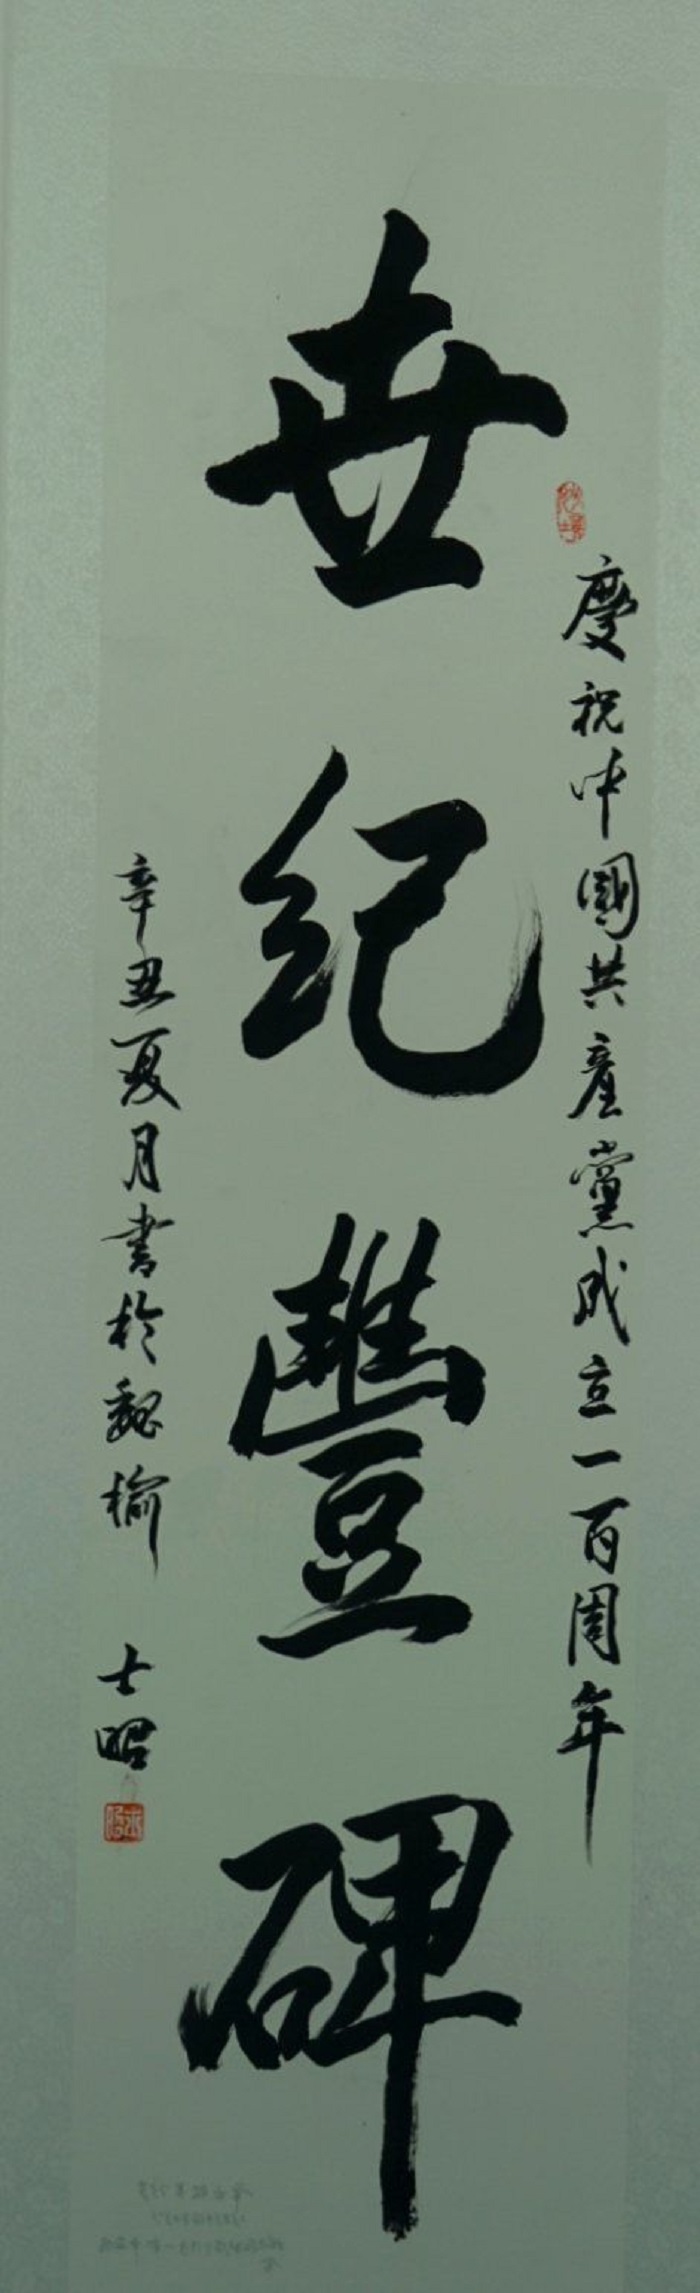 慶祝中國共產黨成立一百周年
世紀豐碑
辛丑夏月書於魏榆
士昭